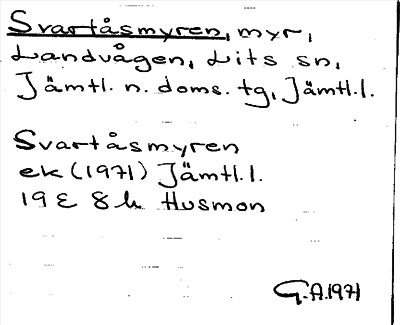 Svartåsmyren, myr,
Landvågen, Lits sn,
Jämtl. n. doms. tg, Jämtl.l.
Svartåsmyren
ek (1971) Jämtl.l.
19 E 8 h Husmon
G.A.1971